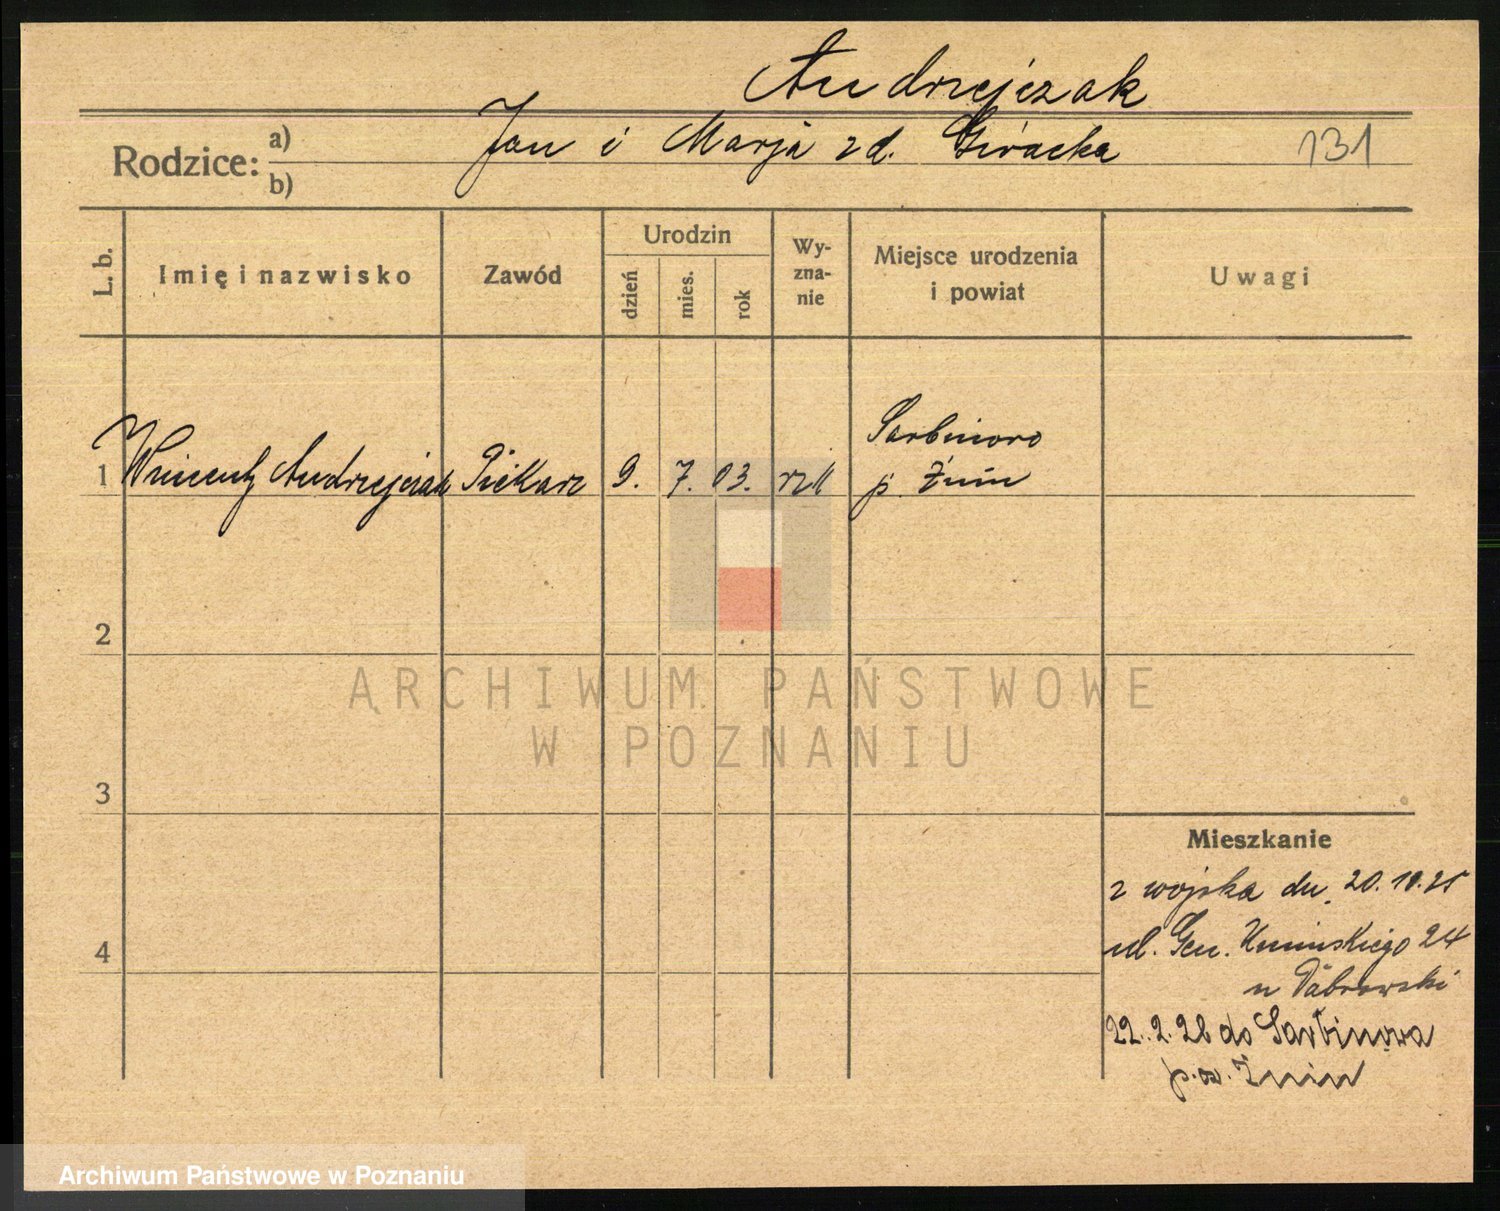 Andrzejczak
Rodzice: a) Jan i Marja z d. 131
b)
L. b.
Imię i nazwisko
Zawód
Urodzin
dzień
mies.
rok
Wy-
zna-
nie
Miejsce urodzenia
i powiat
Uwagi
1 Wincenty Andrzejczak Piekarz 9. 7. 03. rzk Sarbinowo
p. Żnin
2
3
4
ARCHIWUM PAŃSTWOWE
W POZNANIU
Mieszkanie
z wojska dn. 20.10.25
ul. Gen. Umińskiego 24
u Dąbrowski
22.2.26 do Sarbinowa
p. Żnin
Archiwum Państwowe w Poznaniu